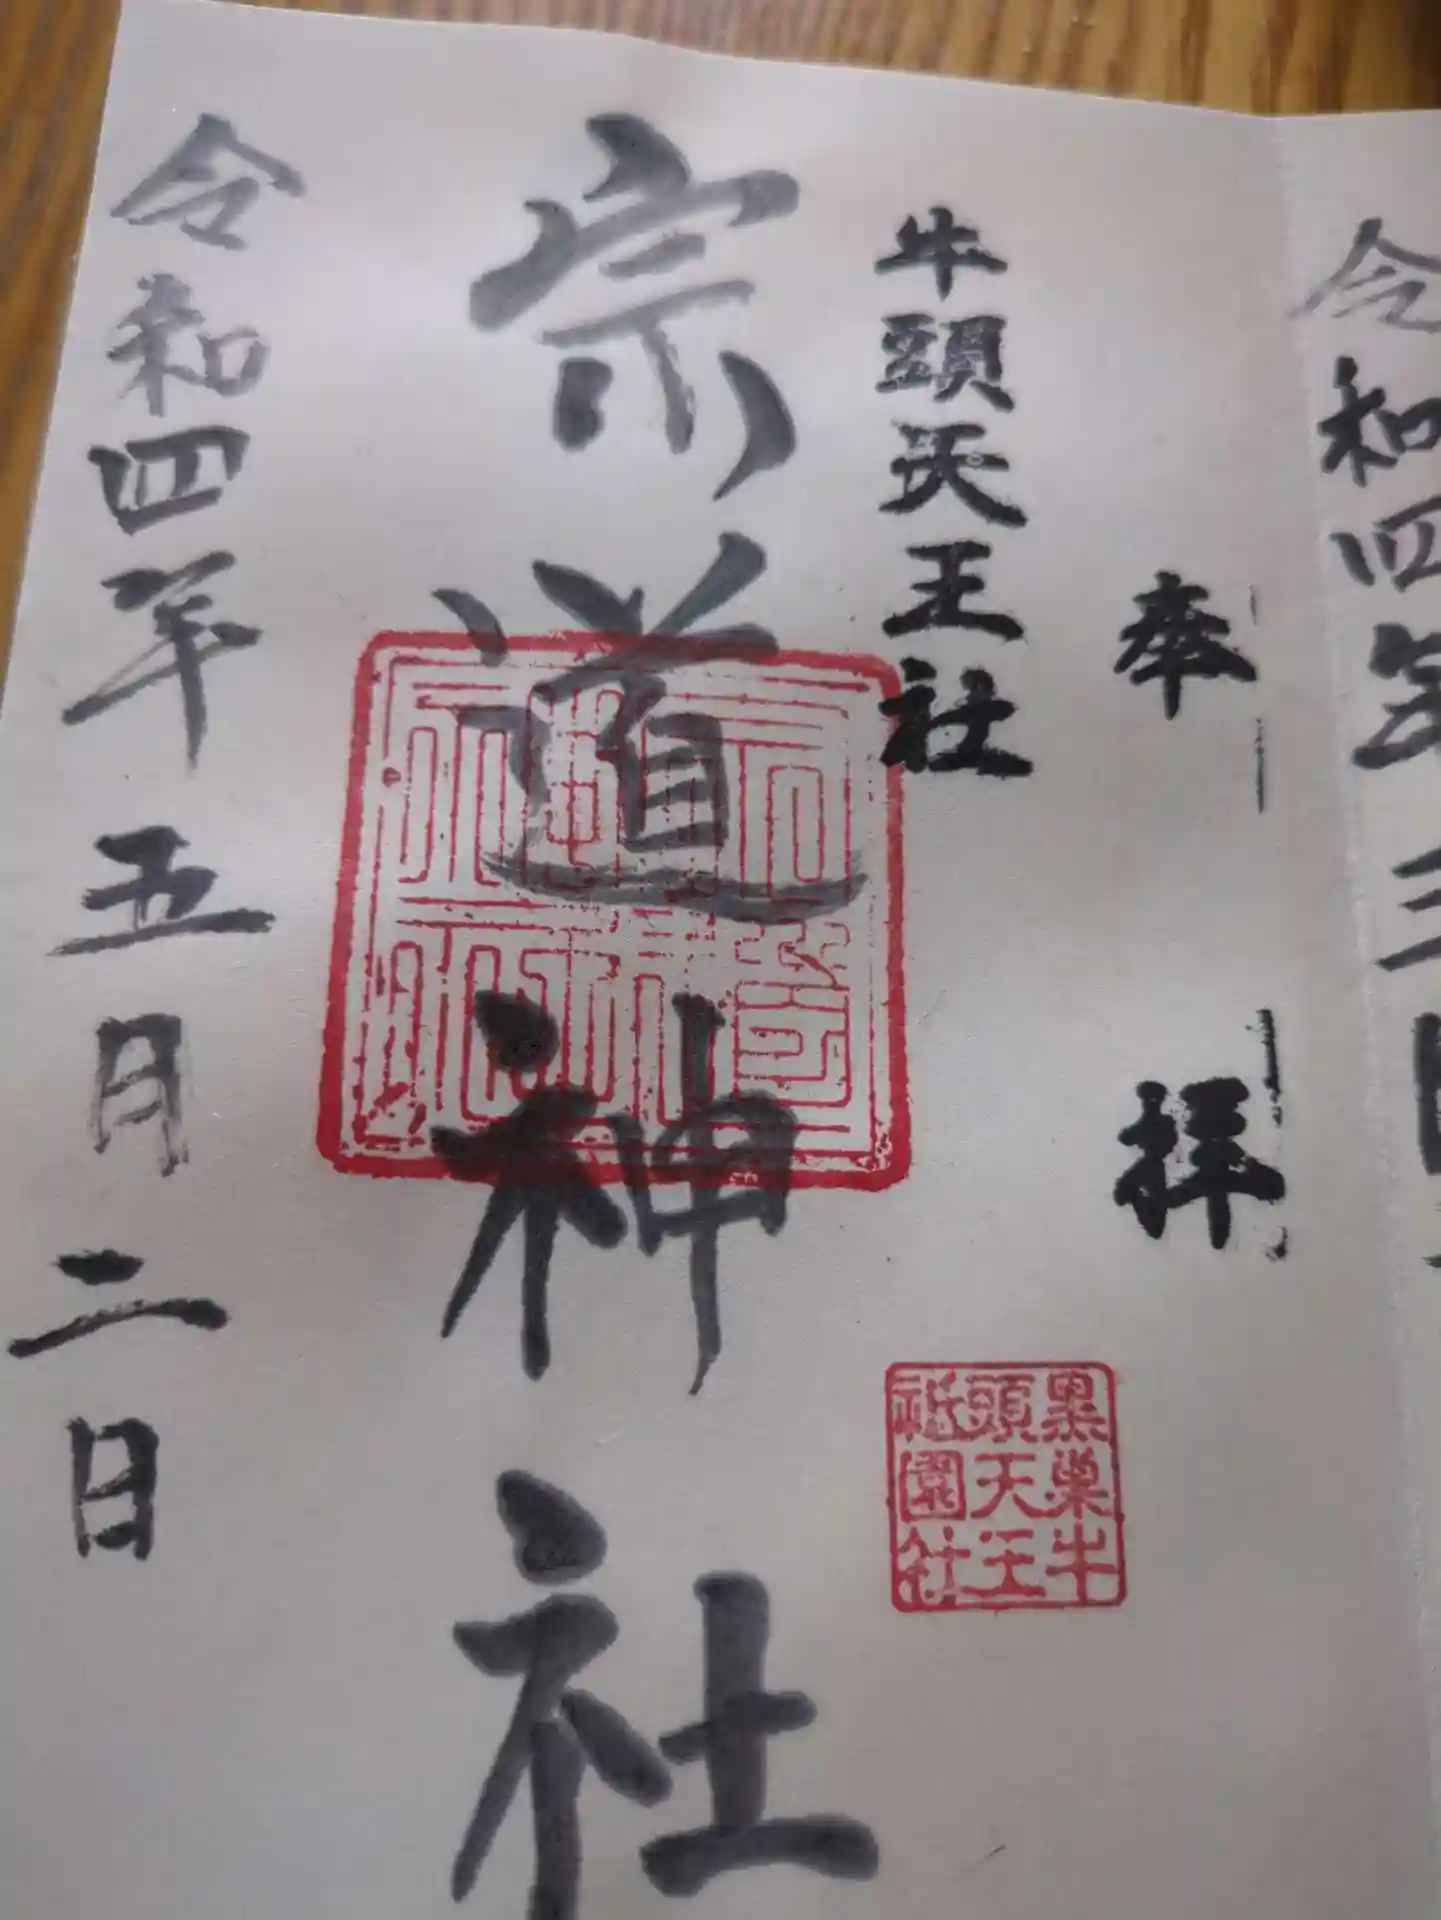 令和四年三
奉拝
牛頭天王社
黒巣牛
頭天王
祇園社
宗道神社
令和四年五月二日